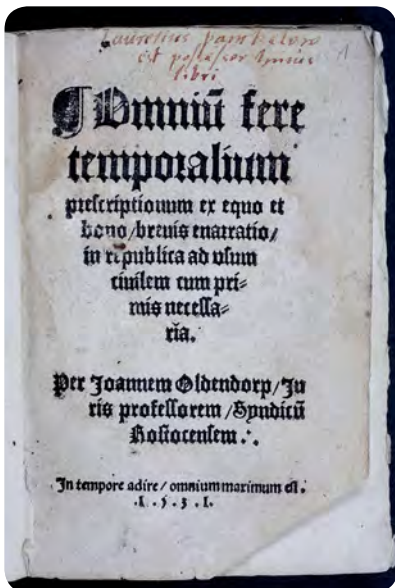 est possessor huius
libri
Omniū fere
temporalium
prescriptionum ex equo et
bono/brevis enarratio/
in republica ad vsum
ciuilem cum pri-
mis necessa-
ria.
Per Joannem Oldendorp/Ju
ris professorem/Syndicū
Rostocensem.·.
In tempore adire/omnium maximum est.
.1.5.3.1.